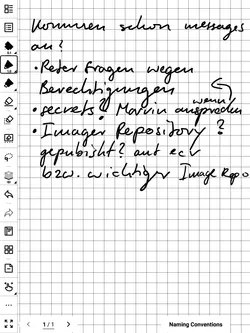 Kommen schon messages
an?
• Peter fragen wegen
Berechtigungen
wenn
• secrets? Marvin ansprechen
• Imager Repository?
gepubisht? auf ecr
bzw. wichtiger Image Repo
1/1
Naming Conventions